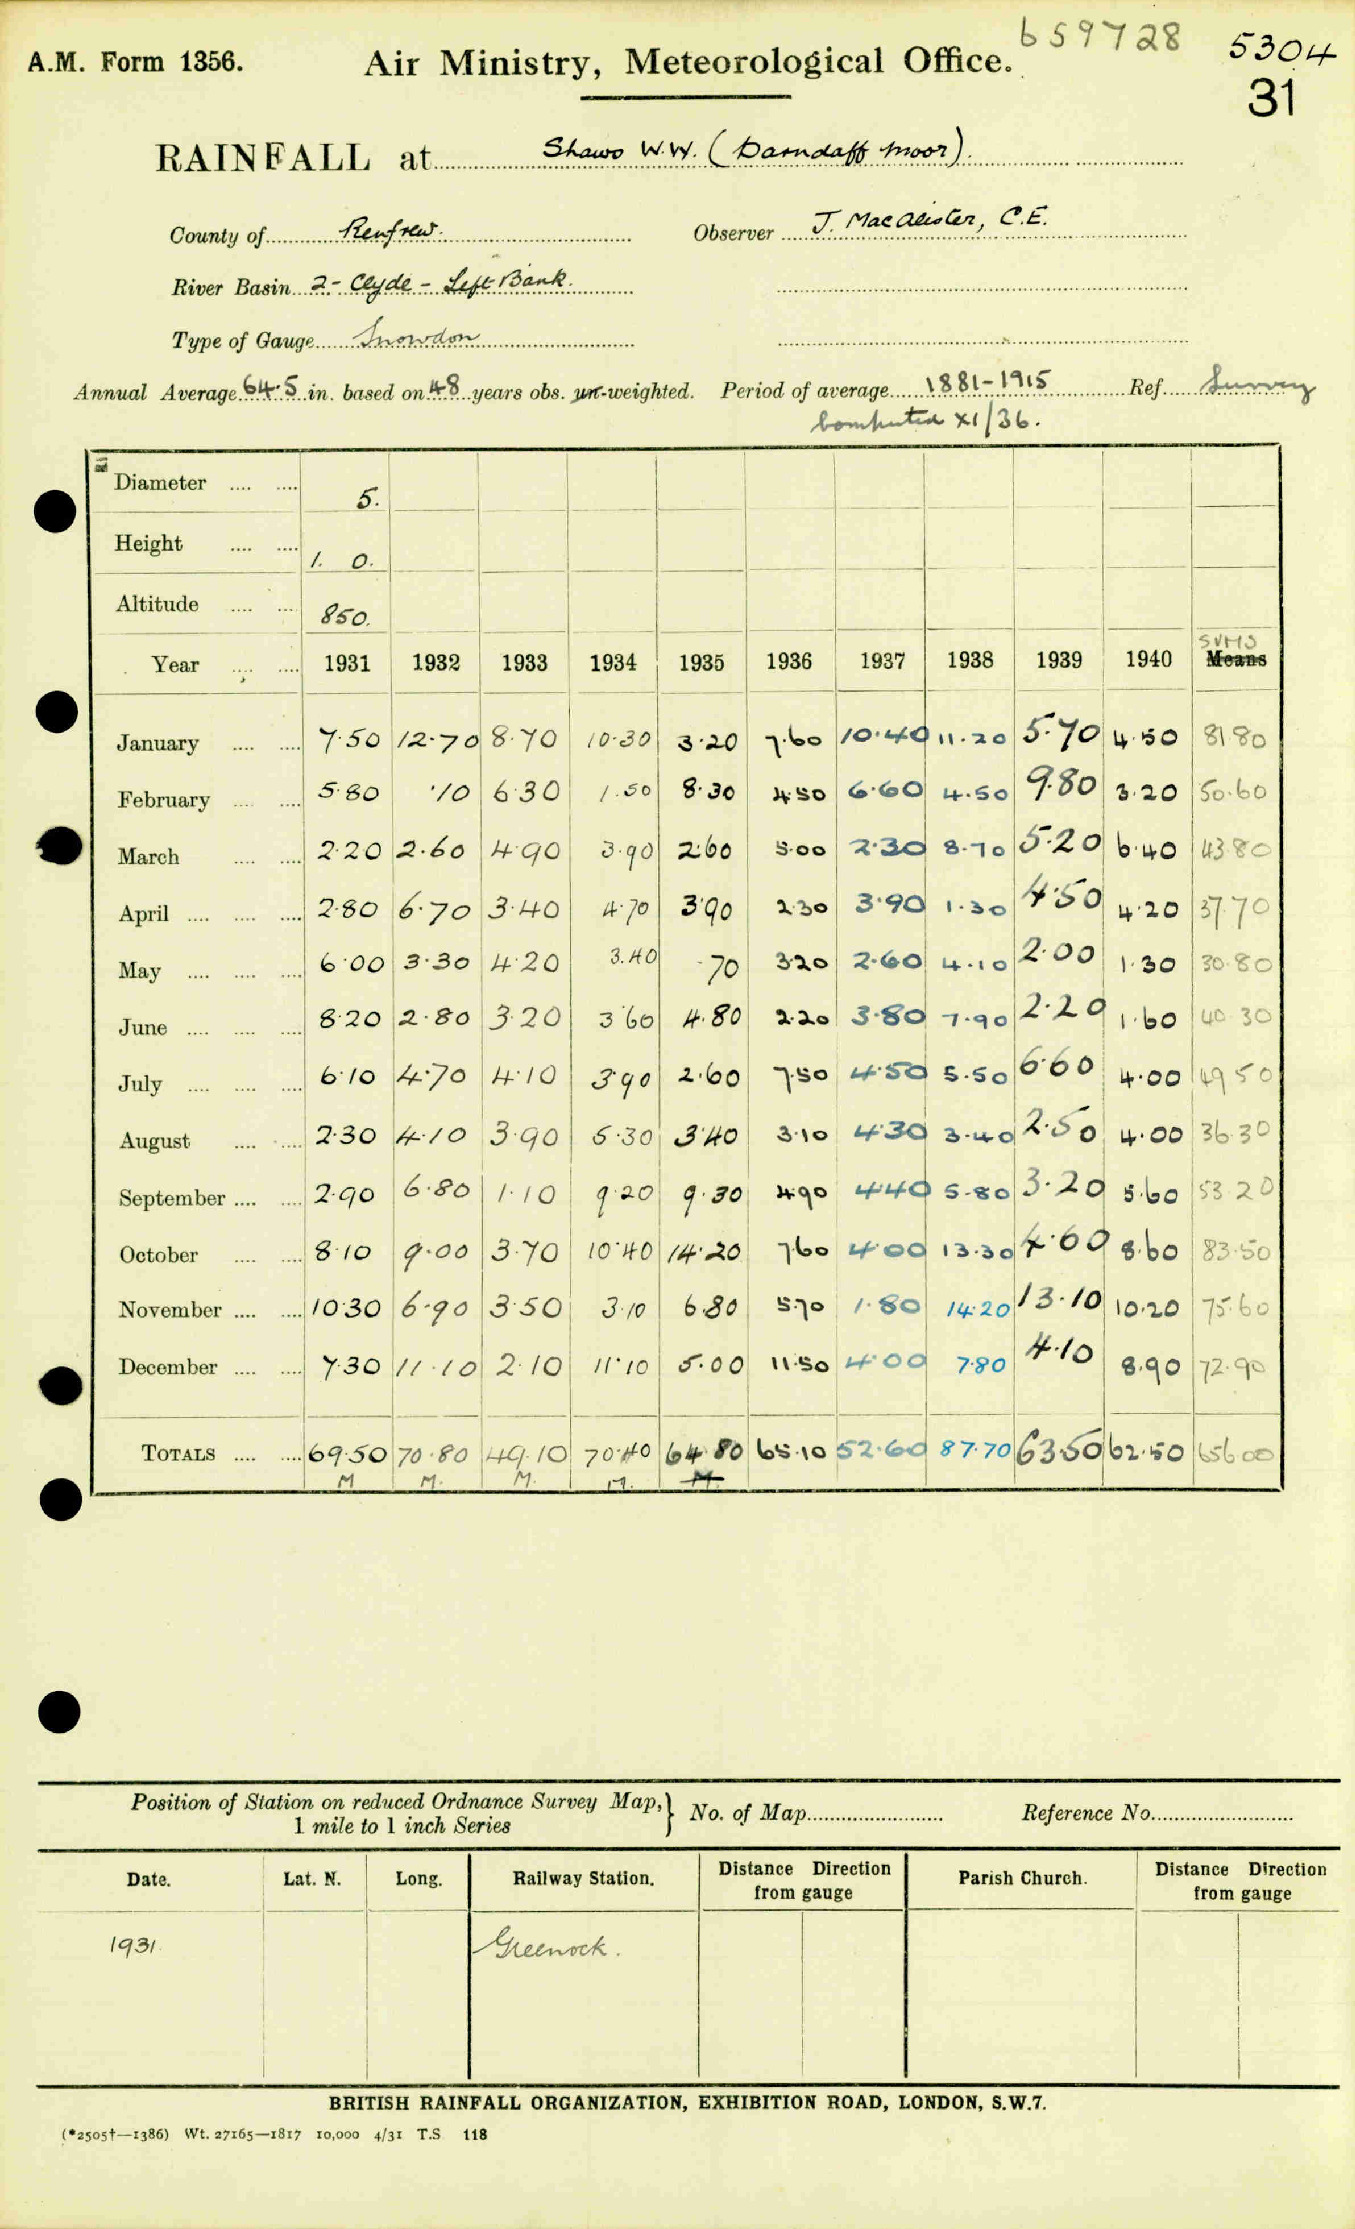 b59728
5304
A.M. Form 1356. Air Ministry, Meteorological Office.
31
RAINFALL at Shaws W.W. (Darndaff Moor).
County of Renfrew. Observer J. MacAlister, C.E.
River Basin 2- Clyde - Left Bank.
Type of Gauge Snowdon
Annual Average 64.5 in. based on 48 years obs. un-weighted. Period of average 1881-1915 Ref. Survey
Computed XI/36.
Diameter .... .... 5.
Height .... .... 1. 0.
Altitude .... .... 850.
SUMS
Year .... .... 1931 1932 1933 1934 1935 1936 1937 1938 1939 1940 Means
January .... .... 7.50 12.70 8.70 10.30 3.20 7.60 10.40 11.20 5.70 4.50 81 80
February .... .... 5.80 .10 6.30 1.50 8.30 4.50 6.60 4.50 9.80 3.20 50.60
March .... .... 2.20 2.60 4.90 3.90 2.60 5.00 2.30 8.70 5.20 6.40 43 80
April .... .... .... 2.80 6.70 3.40 4.70 3.90 2.30 3.90 1.30 4.50 4.20 37.70
May .... .... .... 6.00 3.30 4.20 3.40 .70 3.20 2.60 4.10 2.00 1.30 30.80
June .... .... .... 8.20 2.80 3.20 3.60 4.80 2.20 3.80 7.90 2.20 1.60 40 30
July .... .... .... 6.10 4.70 4.10 3.90 2.60 7.50 4.50 5.50 6.60 4.00 49 50
August .... .... 2.30 4.10 3.90 5.30 3.40 3.10 4.30 3.40 2.50 4.00 36.30
September .... .... 2.90 6.80 1.10 9.20 9.30 4.90 4.40 5.80 3.20 5.60 53 20
October .... .... 8.10 9.00 3.70 10.40 14.20 7.60 4.00 13.30 4.60 8.60 83.50
November .... .... 10.30 6.90 3.50 3.10 6.80 5.70 1.80 14.20 13.10 10.20 75.60
December .... .... 7.30 11.10 2.10 11.10 5.00 11.50 4.00 7.80 4.10 8.90 72.90
TOTALS .... .... 69.50 70.80 49.10 70.40 64.80 65.10 52.60 87.70 63.50 62.50 656 00
M M. M. M. M.
Position of Station on reduced Ordnance Survey Map, } No. of Map Reference No.
1 mile to 1 inch Series
Date. Lat. N. Long. Railway Station. Distance Direction from gauge Parish Church. Distance Direction from gauge
1931 Greenock.
BRITISH RAINFALL ORGANIZATION, EXHIBITION ROAD, LONDON, S.W.7.
(*2505†—1386) Wt. 27165—1817 10,000 4/31 T.S 118